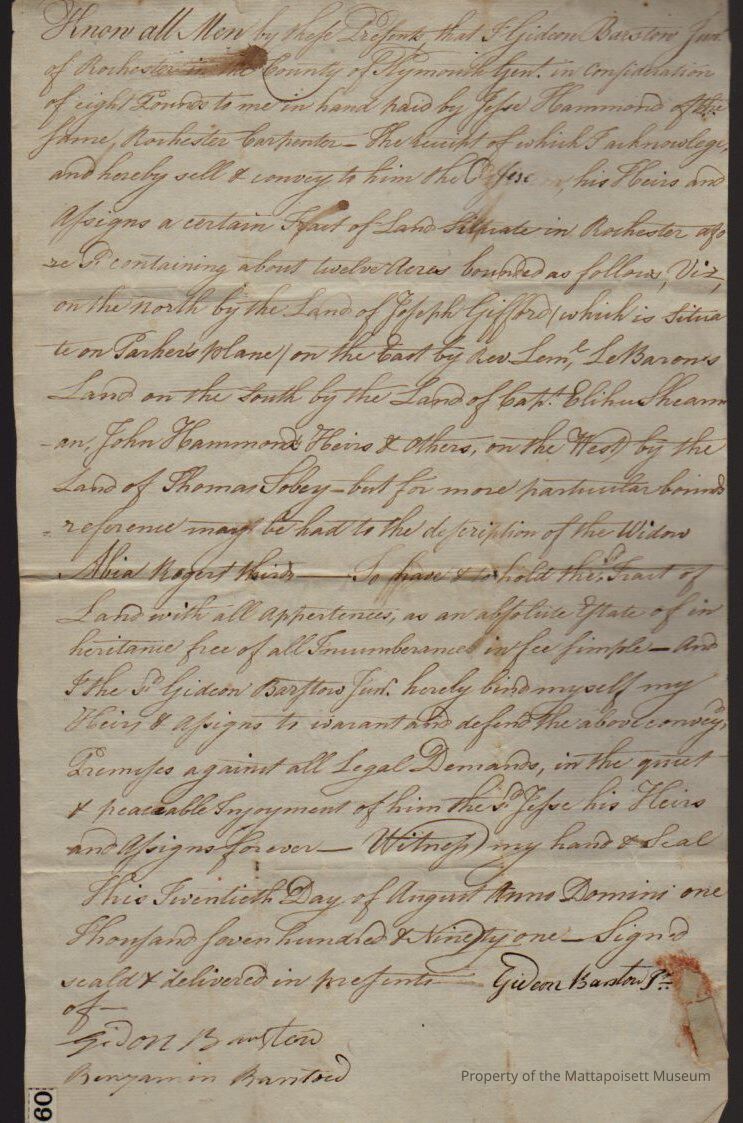 Know all Men by these Presents, that I Gideon Barstow Junr.
of Rochester in the County of Plymouth Gent. in Consideration
of eight Pounds to me in hand paid by Jesse Hammond of the
same, Rochester Carpenter — the receipt of which I acknowlege,
and hereby sell & convey to him the Sd Jesse his Heirs and
Assigns a certain Tract of Land Situate in Rochester afo
re Sd. containing about twelve Acres bounded as follows, Viz,
on the north by the Land of Joseph Gifford (which is Situa
te on Parker's plane) on the East by Rev. Leml. LeBaron's
Land on the South by the Land of Capt. Elihu Shearm
-an, John Hammond's Heirs & Others, on the West by the
Land of Thomas Tobey — but for more particular bounds
reference may be had to the description of the Widow
Abia Rogers thirds — To have & to hold the sd. Tract of
Land with all appertences, as an absolute Estate of in
heritance free of all Incumberances in fee simple — And
I the Sd. Gideon Barstow Junr. hereby bind myself my
Heirs & Assigns to warant and defend the above convey'd
Premises against all Legal Demands, in the quiet
& peaceable Injoyment of him the Sd. Jesse his Heirs
and Assigns forever — Witness my hand & Seal
this Twentieth Day of August Anno Domini one
Thousand seven hundred & Ninety one — Sign'd
seald & delivered in presents — Gideon Barstow Jr.
of —
Gidon Barstow
Benjamin Barstow
Property of the Mattapoisett Museum
60